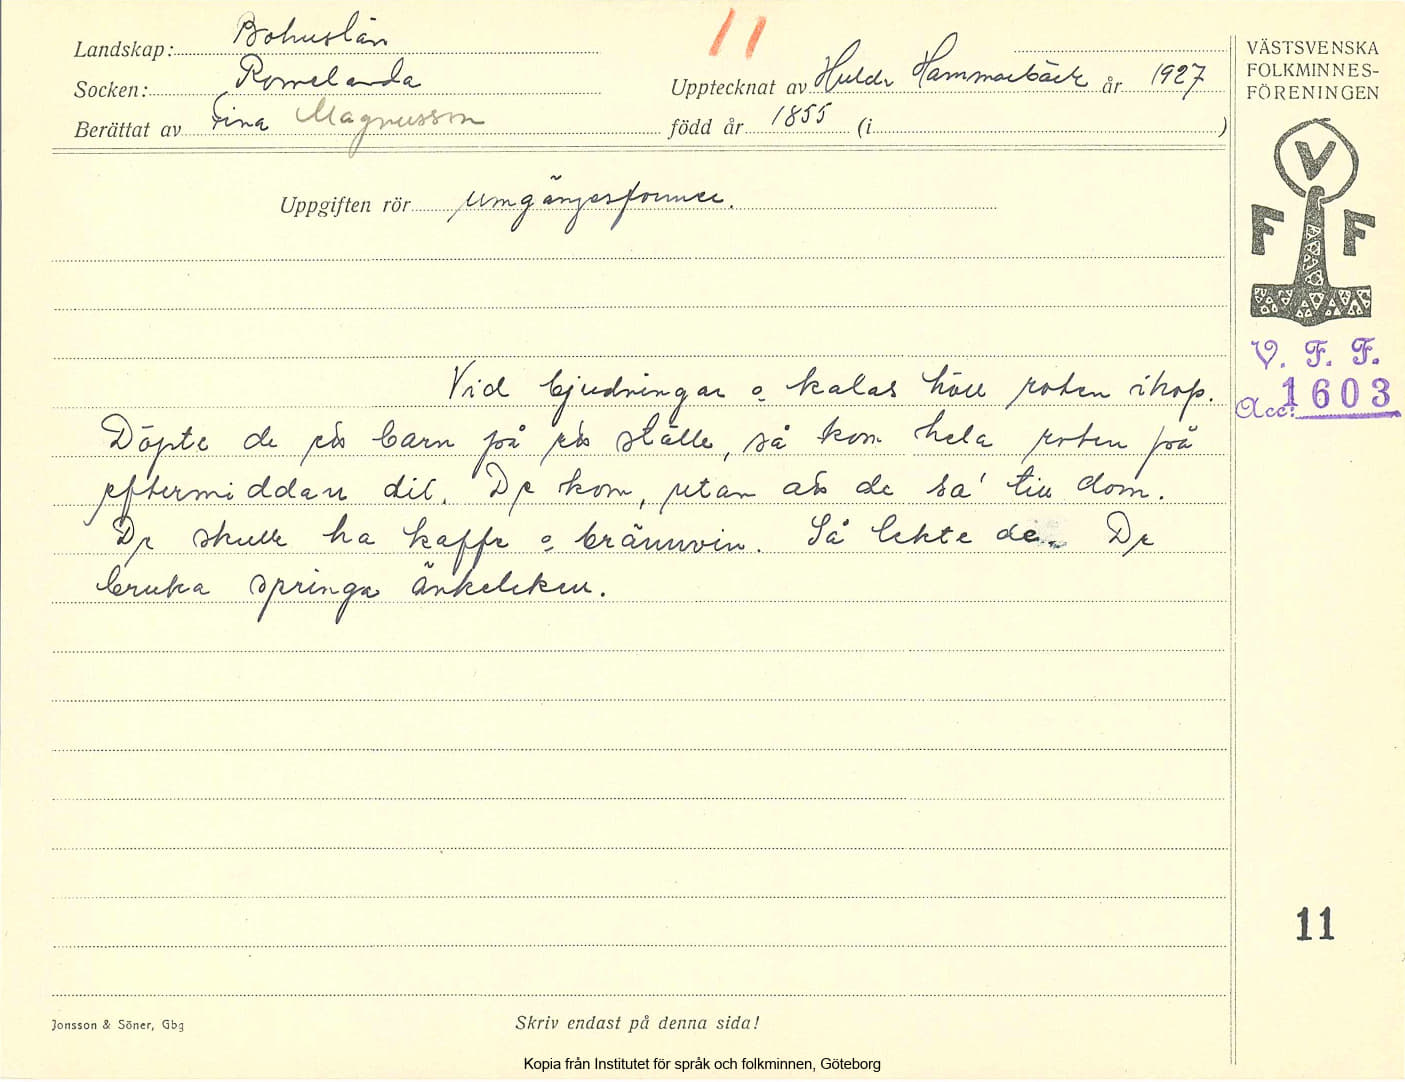 11
Landskap: Bohuslän
Socken: Romelanda
Upptecknat av Huldr Hammarbäck år 1927
Berättat av Tina Magnusson
född år 1855 (i )
Uppgiften rör umgängesformer.
Vid bjudningar o kalas höll roten ihop.
Döpte de ett barn på ett ställe, så kom hela roten på
eftermiddan dit. De kom, utan att de sa' till dom.
De skulle ha kaffe o brännvin. Så lekte de. De
bruka springa änkeleken.
VÄSTSVENSKA
FOLKMINNES-
FÖRENINGEN
V
F F
V. F. F.
Acc: 1603
11
Jonsson & Söner, Gbg
Skriv endast på denna sida!
Kopia från Institutet för språk och folkminnen, Göteborg